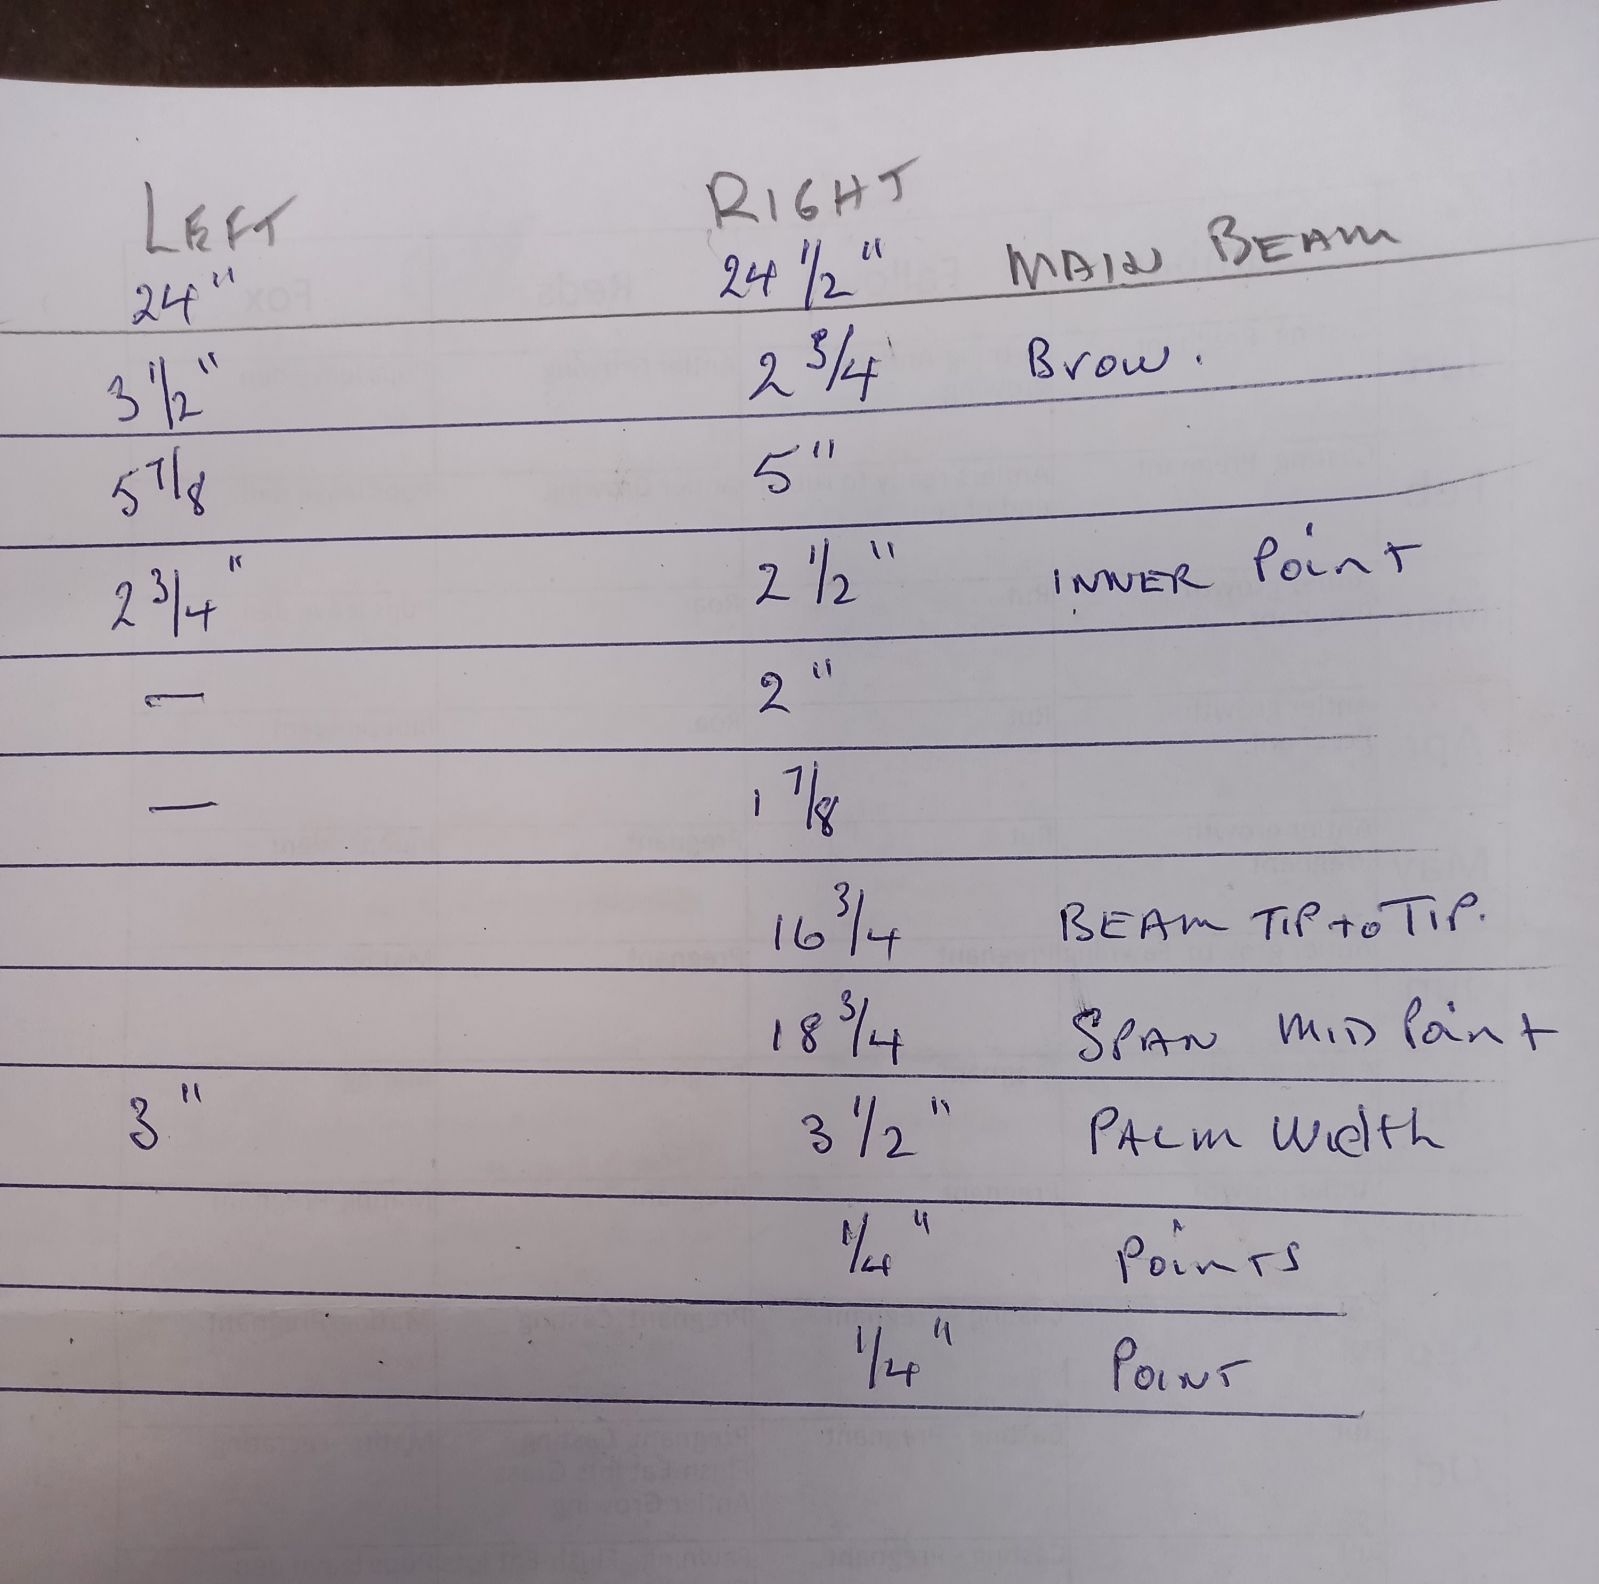 LEFT RIGHT
24" 24 1/2" MAIN BEAM
3 1/2" 2 3/4" Brow.
5 7/8 5"
2 3/4" 2 1/2" INNER Point
— 2"
— 1 7/8
16 3/4 BEAM TIP to TIP.
18 3/4 SPAN MID Point
3" 3 1/2" PALM Width
1/4" Points
1/4" POINT